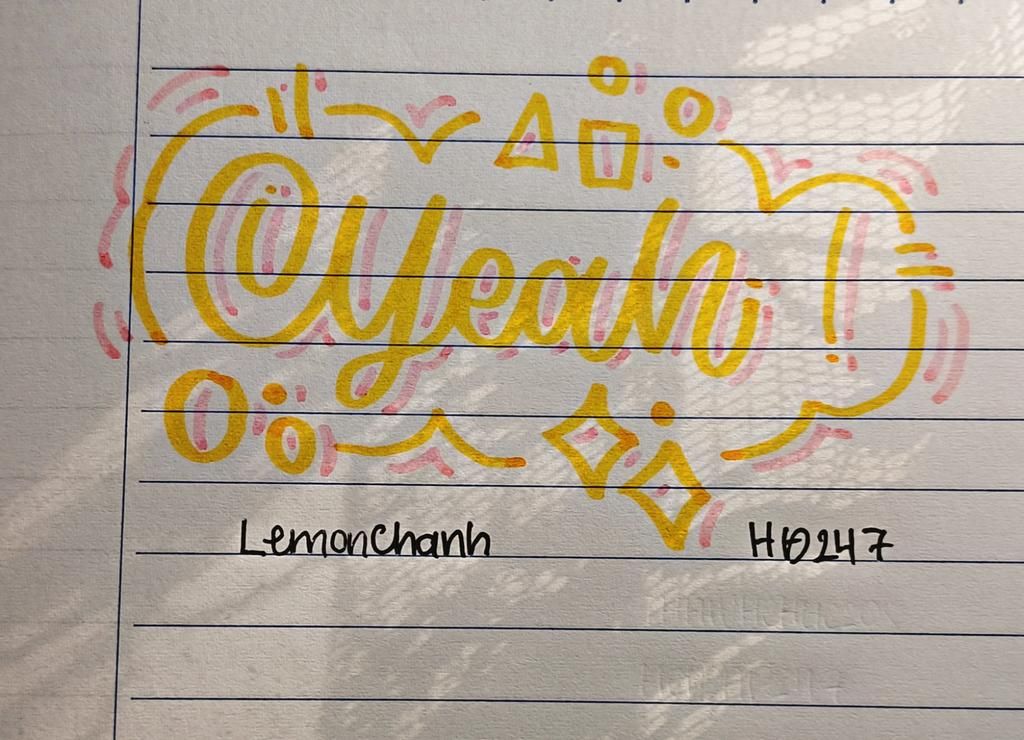 @yeah!
Lemonchanh
HD247